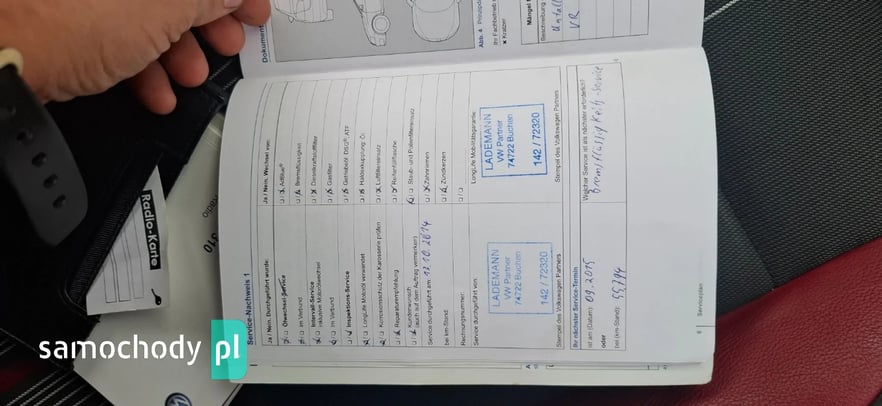 Dokument
Abb. 4 Prinzipd
Ihr Fachbetrieb
x Kratzer
Mängel f
Beschreibung
Unfall
VR
Service-Nachweis 1
Ja / Nein, Durchgeführt wurde:
Ölwechsel-Service
im Verbund
Intervall-Service
inklusive Motorölwechsel
im Verbund
Inspektions-Service
LongLife Motoröl verwendet
Korrosionsschutz der Karosserie prüfen
Reparaturempfehlung
Kundenwunsch
(auch auf dem Auftrag vermerken)
Service durchgeführt am: 12.10.2014
bei km-Stand:
Rechnungsnummer:
Service durchgeführt von:
LADEMANN
VW Partner
74722 Buchen
142 / 72320
Stempel des Volkswagen Partners
Ja / Nein, Wechsel von:
AdBlue®
Bremsflüssigkeit
Dieselkraftstofffilter
Gasfilter
Getriebeöl: DSG®, ATF
Haldexkupplung: Öl
Luftfiltereinsatz
Reifenfüllflasche
Staub- und Pollenfiltereinsatz
Zahnriemen
Zündkerzen
LongLife Mobilitätsgarantie:
LADEMANN
VW Partner
74722 Buchen
142 / 72320
Stempel des Volkswagen Partners
Ihr nächster Service-Termin
ist am (Datum):
oder
bei (km-Stand):
Welcher Service ist als nächster erforderlich?
Serviceplan
Radio-Karte
samochody pl